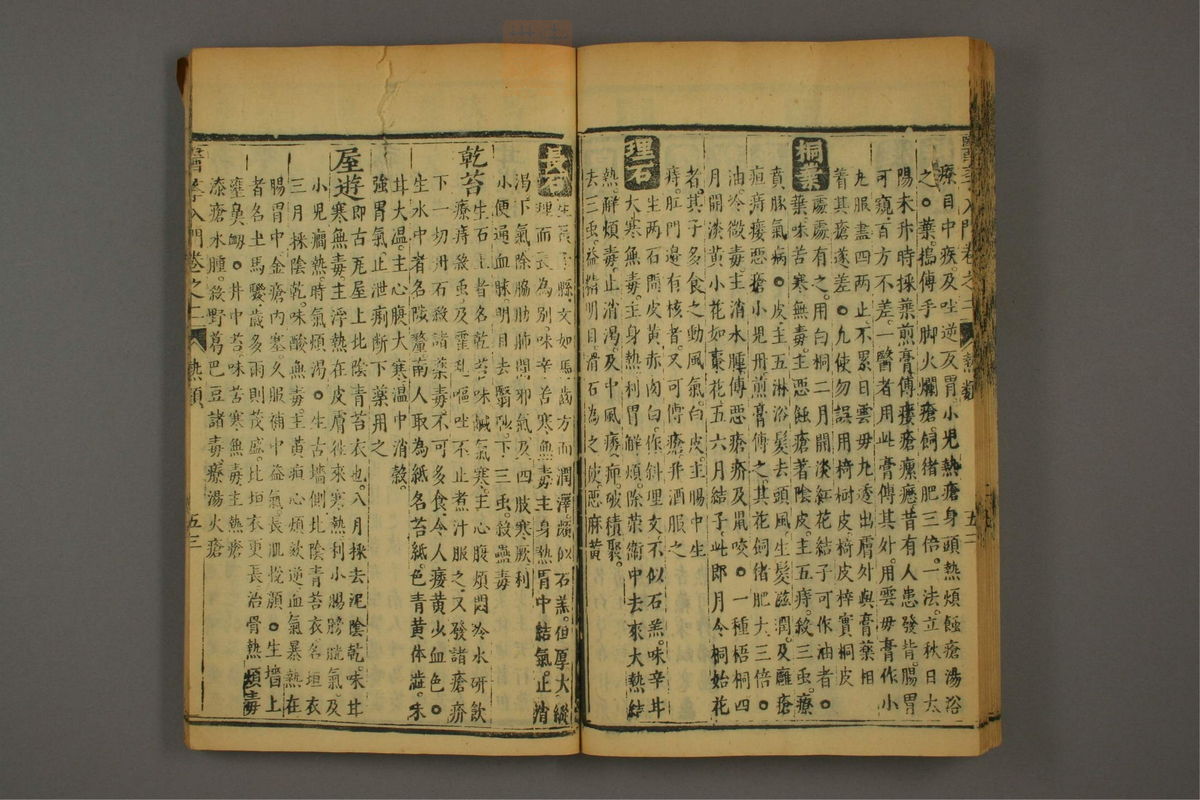 療目中疾及吐逆反胃小兒熱瘡身頭熱煩蝕瘡湯浴
之○葉搗傅手脚火爛瘡飼猪肥三倍一法立秋日太
陽未升時採葉煎膏傅瘻瘡瘰癧昔有人患發背腸胃
可窺百方不差一醫者用此膏傅其外用雲毋膏作小
丸服盡四兩止不累日雲毋丸透出膚外與膏藥相
著其瘡遂差○凢使勿誤用椅樹皮椅皮梓實桐皮
桐葉
處處有之用白桐二月開淡紅花結子可作油者○
葉味苦寒無毒主惡蝕瘡著陰皮主五痔殺三虫療
賁豚氣病○皮主五淋浴髮去頭風生髮滋潤及
疽痔瘻惡瘡小兒丹煎膏傅之其花飼猪肥大三倍○
油冷微毒主消水腫傅惡瘡疥及鼠咬○一種梧桐四
月開淡黃小花如棗花五六月結子此即月令桐始花
者其子多食之動風氣白皮主腸中生
痔肛門邊有核者又可傅瘡并酒服之
理石
生两石間皮黃赤肉白作斜理文不似石羔味辛甘
大寒無毒主身熱利胃解煩除榮衞中去來大熱結
熱解煩毒止消渴及中風痿痹破積聚
去三虫益精明目滑石為之使惡麻黃
長石
縣文如馬齒方而潤澤頗似石羔但厚大縱
理而長為别味辛苦寒無毒主身熱胃中結氣止消
渴下氣除脇肋肺間邪氣及四肢寒厥利
小便通血脉明目去翳眇下三虫殺蠱毒
乾苔
生石上者名乾苔味鹹氣寒主心腹煩悶冷水研飲
療痔殺虫及霍乱嘔吐不止煮汁服之又發諸瘡疥
下一切丹石殺諸藥毒不可多食令人痿黃少血色○
生水中者名陟釐南人取為紙名苔紙色青黃体澁朱
甘大溫主心腹大寒溫中消穀
強胃氣止泄痢斷下藥用之
屋遊
即古瓦屋上北陰青苔衣也八月採去泥陰乾味甘
寒無毒主浮熱在皮膚徃來寒熱利小腸膀胱氣及
小兒癎熱時氣煩渴○生古墻側北陰青苔衣名垣衣
三月採陰乾味酸無毒主黃疸心煩欬逆血氣暴熱在
腸胃中金瘡內塞久服補中益氣長肌悅顏○生墻上
者名土馬騣歲多雨則茂盛比垣衣更長治骨熱煩毒
壅鼻衂○井中苔味苦寒無毒主熱瘡
漆瘡水腫殺野葛巴豆諸毒療湯火瘡
醫學入門卷之二 熱類 五三